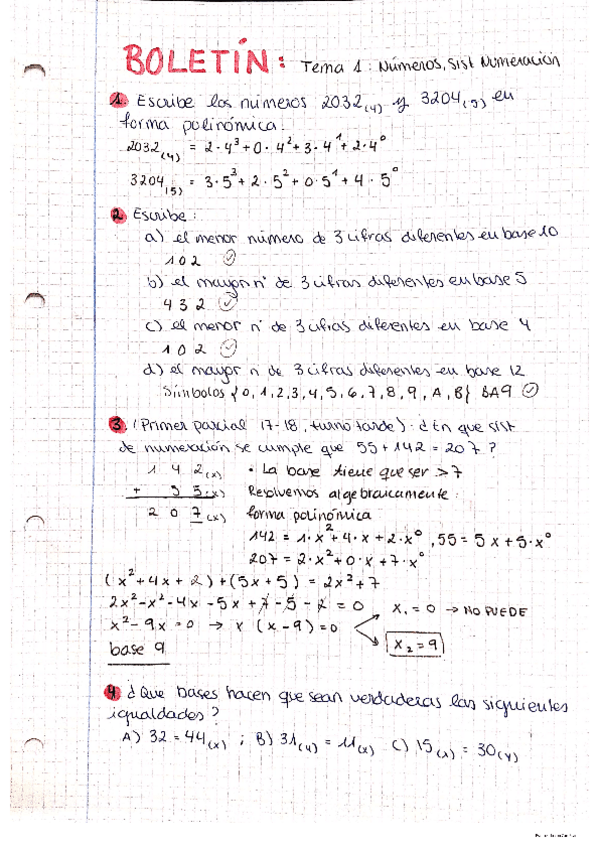 BOLETÍN: Tema 1: Números, Sist Numeración
1. Escribe los números 2032(4) y 3204(5) en
forma polinómica.
2032(4) = 2·4³+0·4²+3·4¹+2·4⁰
3204(5) = 3·5³+2·5²+0·5¹+4·5⁰
2 Escribe:
a) el menor número de 3 cifras diferentes en base 10
102
b) el mayor nº de 3 cifras diferentes en base 5
432
c) el menor nº de 3 cifras diferentes en base 4
102
d) el mayor n de 3 cifras diferentes en base 12
Símbolos {0,1,2,3,4,5,6,7,8,9,A,B} BA9
3. (Primer parcial 17-18, turno tarde). ¿En que sist
de numeración se cumple que 55+142=207?
1 4 2(x) • La base tiene que ser >7
+ 5 5(x) Resolvemos algebraicamente:
2 0 7(x) forma polinómica
142 = 1·x²+4·x+2·x⁰, 55=5x+5·x⁰
207 = 2·x²+0·x+7·x⁰
(x²+4x+2)+(5x+5) = 2x²+7
2x²-x²-4x-5x+7-5-2=0
x²-9x=0 → x(x-9)=0
x₁=0 → NO PUEDE
x₂=9
base 9
4 ¿Que bases hacen que sean verdaderas las siguientes
igualdades?
A) 32=44(x) ; B) 31(4)=11(x) C) 15(x)=30(y)